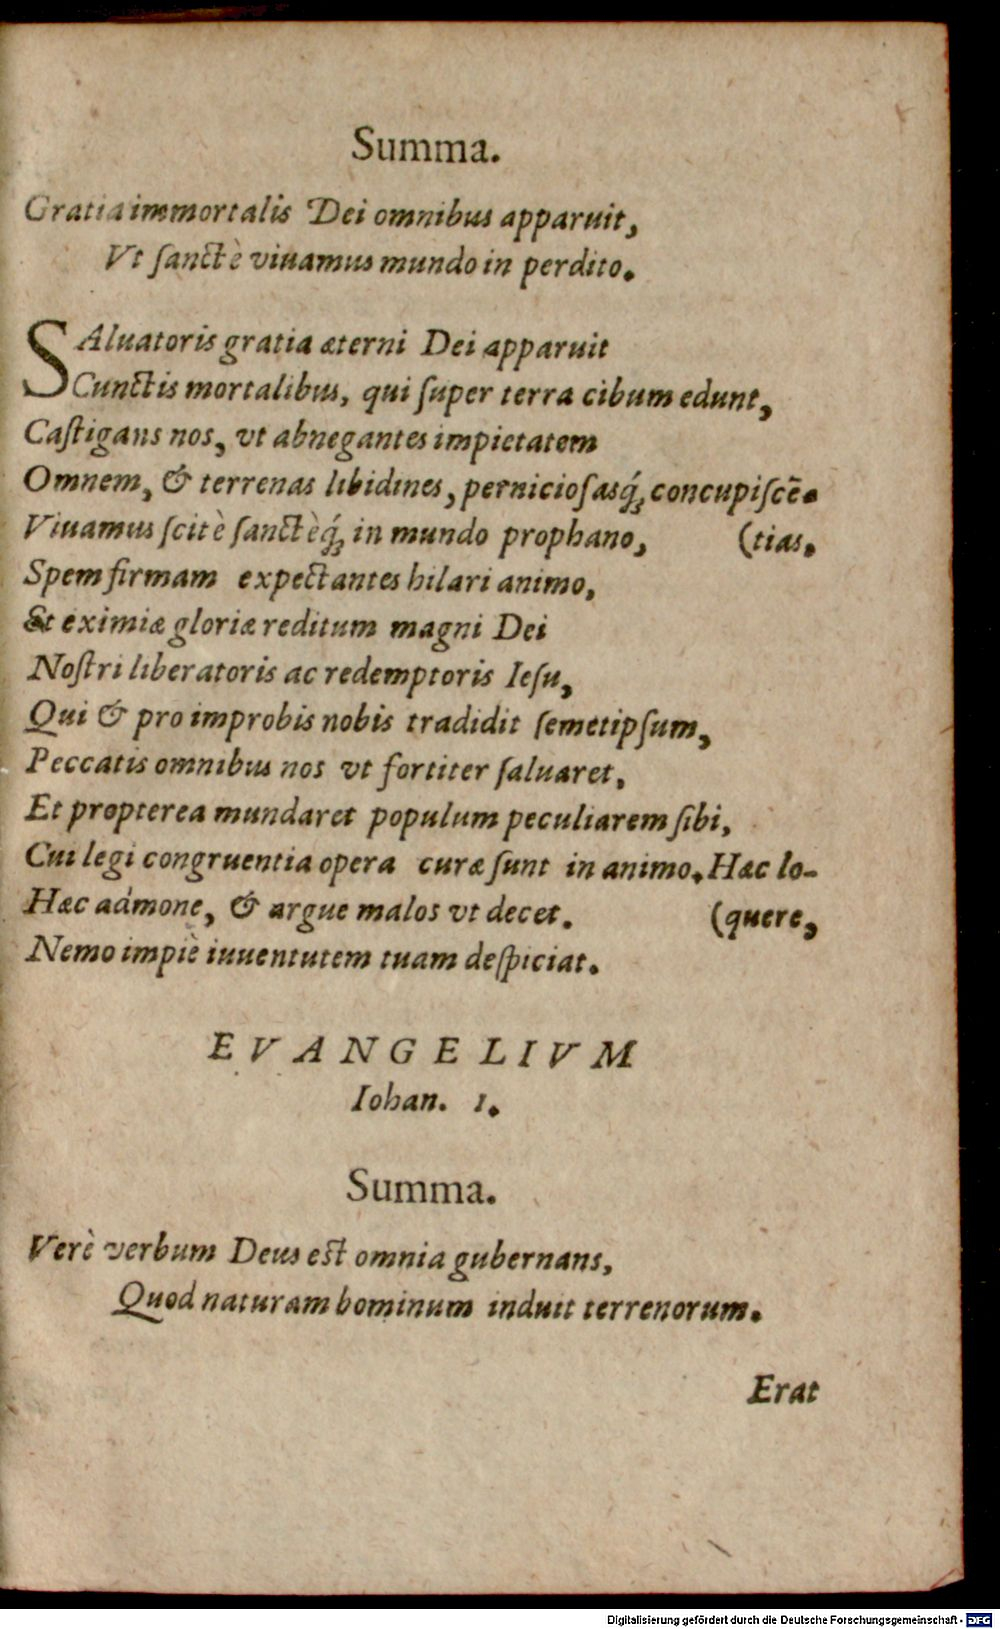 Summa.
Gratia immortalis Dei omnibus apparuit,
Vt ſanctè viuamus mundo in perdito.
SAluatoris gratia æterni Dei apparuit
Cunctis mortalibus, qui ſuper terra cibum edunt,
Caſtigans nos, vt abnegantes impietatem
Omnem, & terrenas libidines, pernicioſasq́; concupiſcē-
Viuamus ſcitè ſanctèq́; in mundo prophano, (tias,
Spem firmam expectantes hilari animo,
Et eximiæ gloriæ reditum magni Dei
Noſtri liberatoris ac redemptoris Ieſu,
Qui & pro improbis nobis tradidit ſemetipſum,
Peccatis omnibus nos vt fortiter ſaluaret,
Et propterea mundaret populum peculiarem ſibi,
Cui legi congruentia opera curæ ſunt in animo. Hæc lo-
Hæc admone, & argue malos vt decet. (quere,
Nemo impiè iuuentutem tuam deſpiciat.
EVANGELIVM
Iohan. 1.
Summa.
Verè verbum Deus est omnia gubernans,
Quod naturam hominum induit terrenorum.
Erat
Digitalisierung gefördert durch die Deutsche Forschungsgemeinschaft - DFG